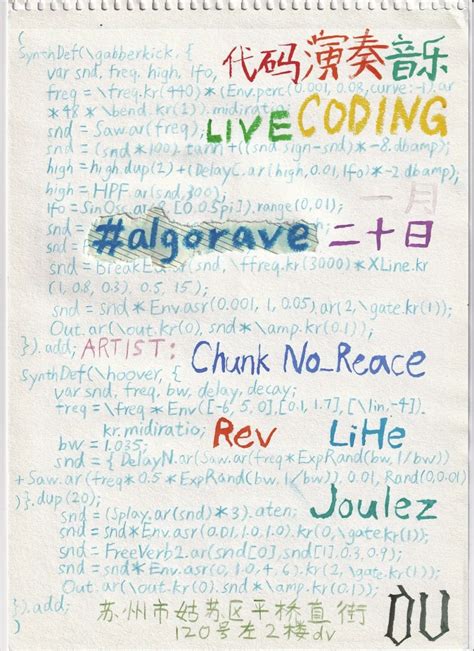 (
SynthDef(\gabberkick, {
代码演奏音乐
var snd, freq, high, lfo,
freq = \freq.kr(440)*(Env.perc(0.001, 0.08, curve:-1).ar
*48*\bend.kr(1)).midiratio;
LIVE CODING
snd = Saw.ar(freq);
snd = (snd*100).tanh+((snd.sign-snd)*-8.dbamp);
high = high.dup(2)+(DelayC.ar(high, 0.01, lfo)*-2.dbamp);
high = HPF.ar(snd, 300);
一月
lfo = SinOsc.ar(8, [0 0.5pi]).range(0, 01);
#algorave 二十日
snd = BreakEa
(snd, \ffreq.kr(3000)*XLine.kr
(1, 0.8, 0.3), 0.5, 15);
snd = snd*Env.asr(0.001, 1, 0.05).ar(2, \gate.kr(1));
Out.ar(\out.kr(0), snd*\amp.kr(0.1));
}).add;
ARTIST: Chunk No_Reace
SynthDef(\hoover, {
var snd, freq, bw, delay, decay;
freq = \freq*Env([-6, 5, 0],[0.1, 1.7],[\lin, -4]).
kr.midiratio;
Rev LiHe
bw = 1.035;
snd = { DelayN.ar(Saw.ar(freq*ExpRand(bw, 1/bw))
+Saw.ar(freq*ExpRand(bw, 1/bw)), 0.01, Rand(0, 0.01)
)}.dup(20);
Joulez
snd = (Splay.ar(snd)*3).atan;
snd = snd*Env.asr(0.01, 1.0, 1.0).kr(0, \gate.kr(1));
snd = FreeVerb2.ar(snd[0], snd[1], 0.3, 0.9);
snd = snd*Env.asr(0, 1.0, 4, 6).kr(2, \gate.kr(1));
Out.ar(\out.kr(0), snd*\amp.kr(0.1));
}).add;
)
苏州市姑苏区平桥直街
120号左2楼dv
DV